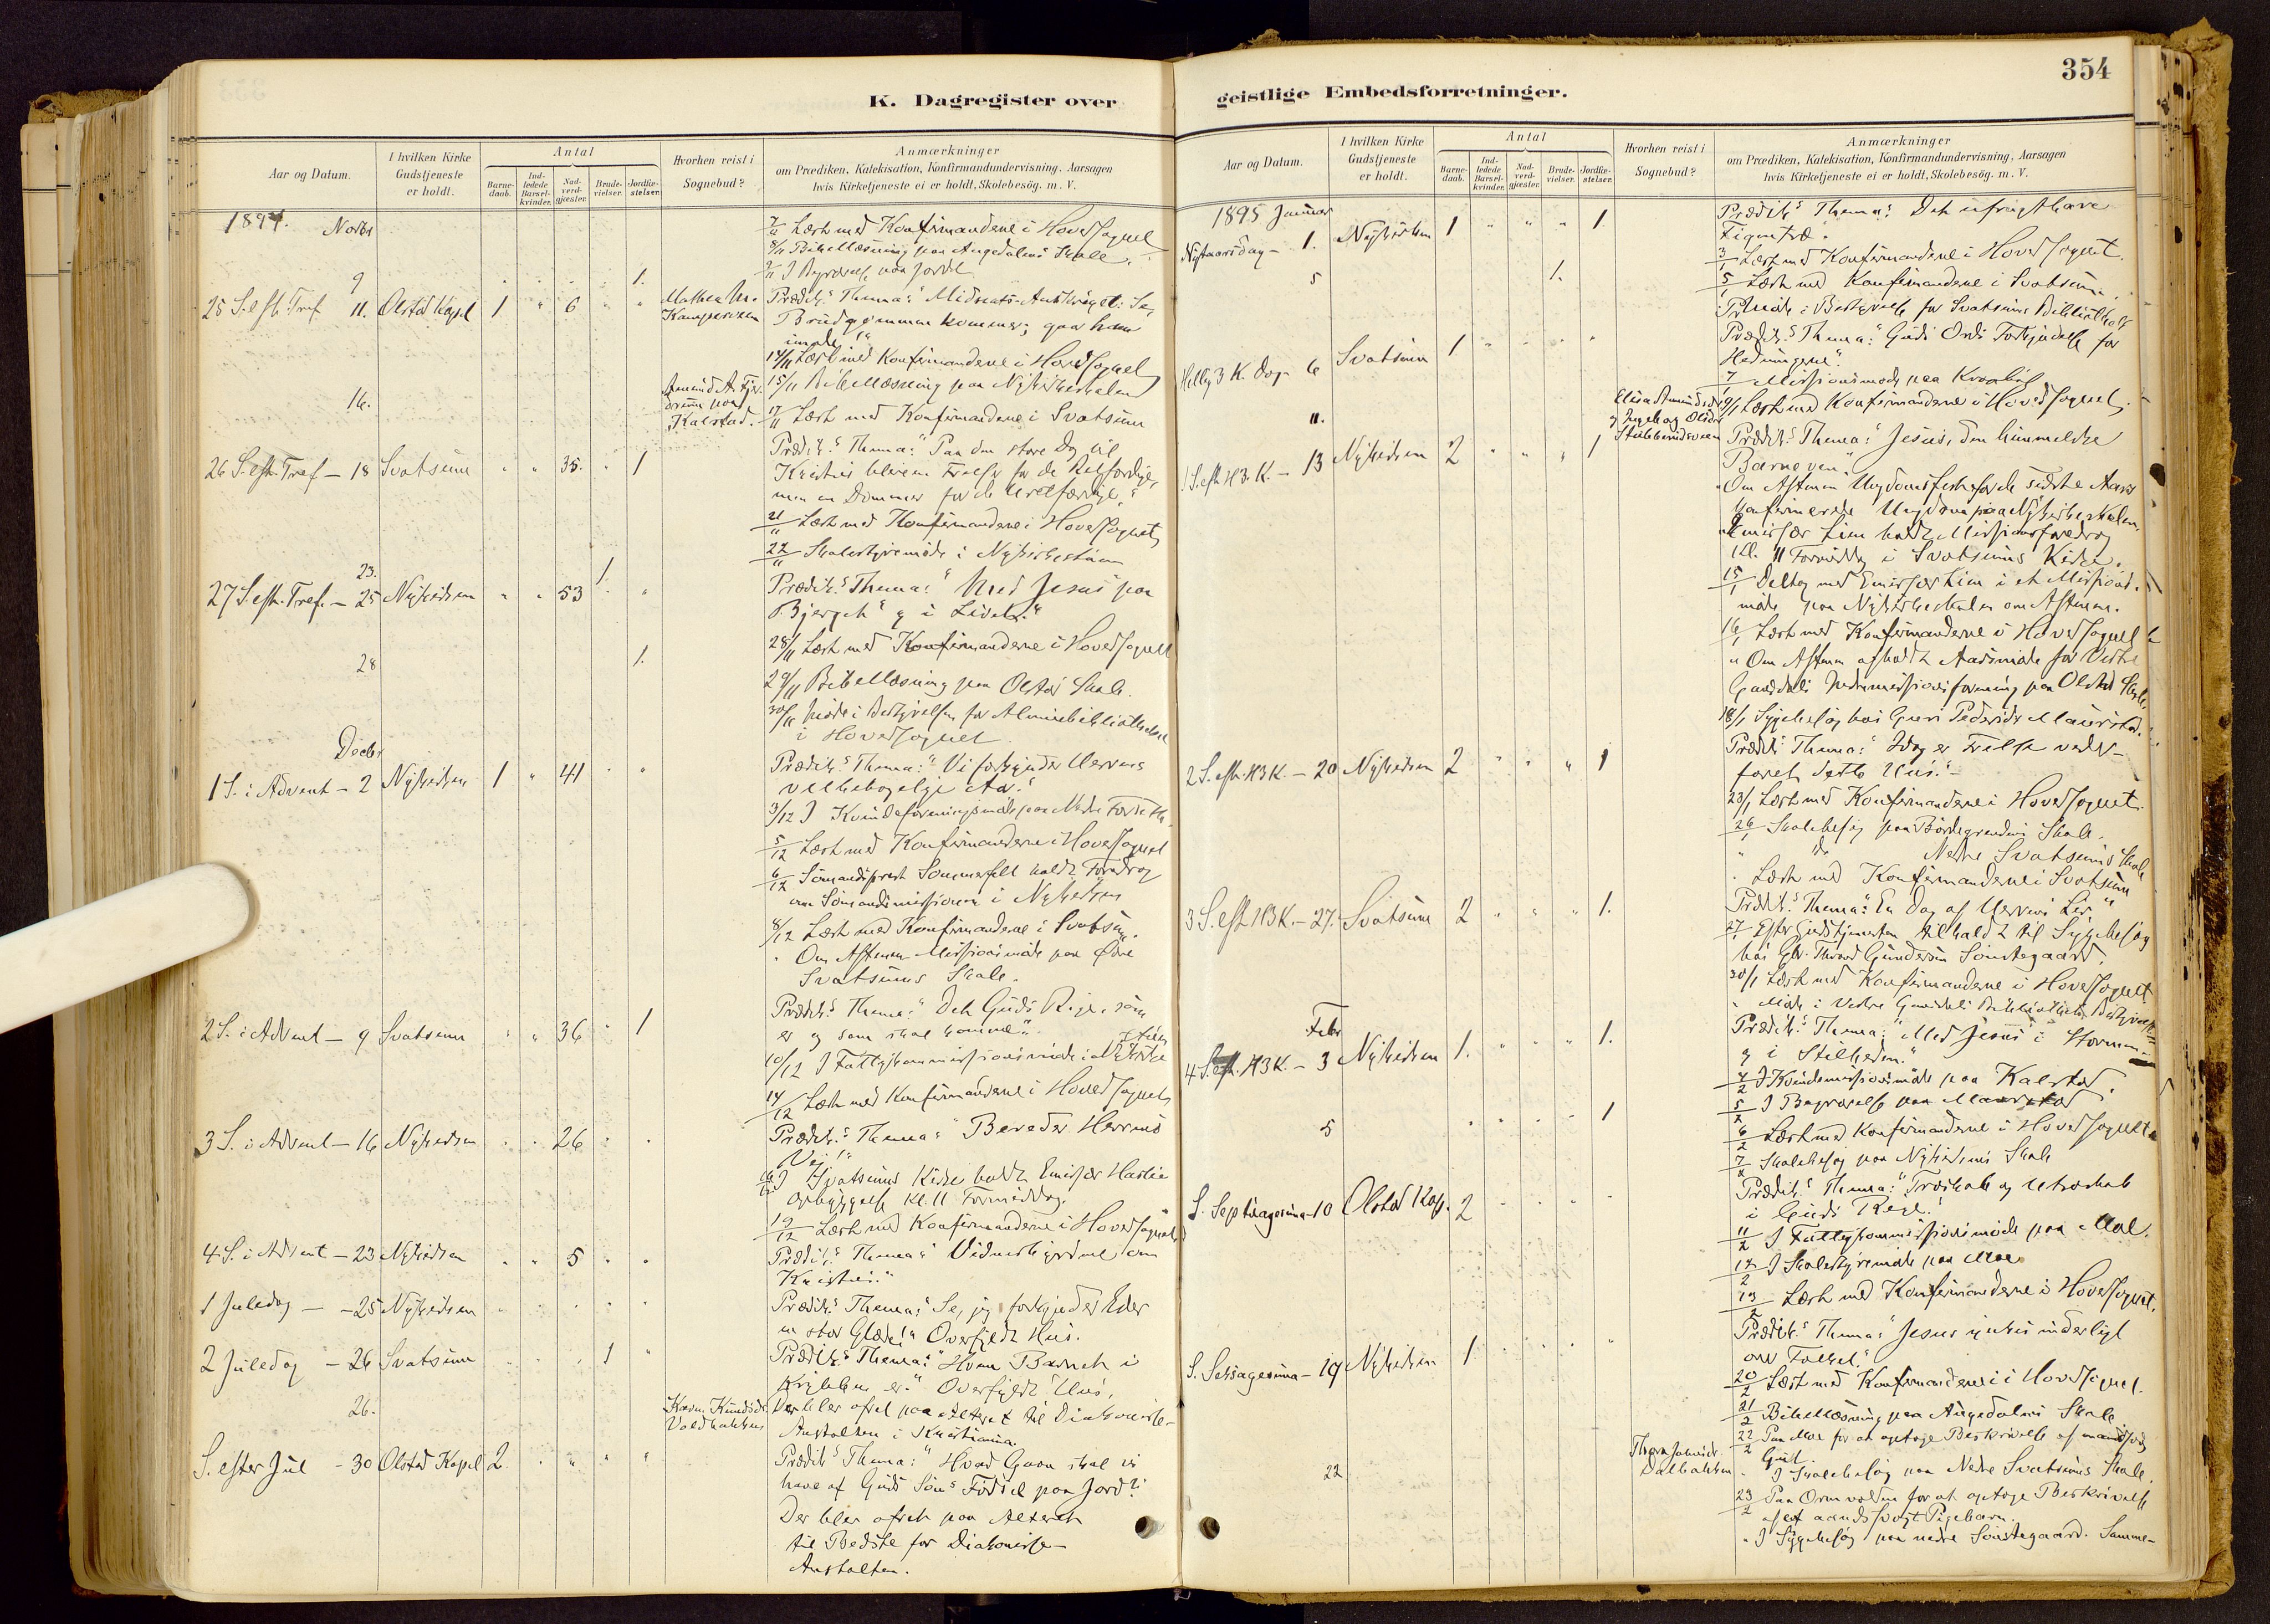 K. Dagregister over
Aar og Datum.
I hvilken Kirke Gudstjeneste er holdt.
Antal
Barnedaab.
Indledede Barselkvinder.
Nadverdgjæster.
Brudevielser.
Jordfæstelser.
Hvorhen reist i Sognebud?
Anmærkninger
om Prædiken, Katekisation, Konfirmandundervisning. Aarsagen
hvis Kirketjeneste ei er holdt, Skolebesög. m. V.
1894. Novbr
7/11 Læst med Konfirmandene i Hovedsognet
8/11 Bibellæsning paa Augedalens Skole.
9 1. 9/11 I Begravelse paa
25 S. eft. Tref. 11. Olstad Kapel 1 " 6 " " Mathea M. Prædik. Thema: "Midnats-Anskriget: Se,
Brudgommen kommer; gaa ham
imøde!"
14/11 Læst med Konfirmandene i Hovedsognet
16. 15/11 Bibellæsning paa Nykirkeskolen
Kalstad. 17/11 Læst med Konfirmandene i Svatsum
26 S. eft. Tref. – 18 Svatsum " " 35. " 1 Prædik. Thema: "Paa den store Dag vil
Kristus bliver Frelser for de Retfærdige,
men en Dommer for de Uretfærdige."
21/11 Læst med Konfirmandene i Hovedsognet
22/11 Skolestyremöde i Nykirkestuen
23. 1.
27 S. eft. Tref. – 25 Nykirken " " 53 " Prædik. Thema: "Med Jesus paa
Bjerget og i Livet."
28 1. 28/11 Læst med Konfirmanderne i Hovedsognet
29/11 Bibellæsning paa Olstad Skole.
30/11 Møde i Bestyrelsen for Almuebibliotheket
i Hovedsognet
Decbr
1 S. i Advent – 2 Nykirken 1 " 41 " " Prædik. Thema: "Vi forkynder Herrens
velbehagelige Aar."
3/12 I Kvindeforeningsmøde paa
5/12 Læst med Konfirmanderne i Hovedsognet
6/12 Sömandsprest Sommerfelt holdt Foredrag
om Sömandsmissionen i Nykirken
8/12 Læst med Konfirmandene i Svatsum.
" Om Aftenen Missionsmöde paa Øvre
Svatsums Skole.
2 S. i Advent – 9 Svatsum " " 36 " 1 Prædik. Thema: "Det Guds Rige, som
er og som skal komme".
10/12 I Fattigkommissionsmöde i Nykirke
14/12 Læst med Konfirmanderne i Hovedsognet
3 S. i Advent – 16 Nykirken " " 26 " " Prædik. Thema: "Bereder Herrens
Vej!"
I Svatsums Kirke holdt Emissær
Opbyggelse Kl. 11 Formiddag.
19/12 Læst med Konfirmanderne i Hovedsognet
4 S. i Advent – 23 Nykirken " " 5 " " Prædik. Thema: "Vidnesbyrdene om
Kristus."
1 Juledag – 25 Nykirken Prædik. Thema: "Se, jeg forkynder Eder
en stor Glæde!" Overfyldt Hus.
2 Juledag – 26 Svatsum 1 " Prædik. Thema: "Hvem Barnet i
Krybben er." Overfyldt Hus.
26. Der blev ofret paa Alteret til Diakonisse-
Anstalten i Kristiania.
S. efter Jul – 30 Olstad Kapel 2 " " " " Prædik. Thema: "Hvad Gavn skal vi
have af Guds Söns Födsel paa Jord?"
Der blev ofret paa Alteret
til Bedste for Diakonisse-
Anstalten.
geistlige Embedsforretninger.
354
Aar og Datum.
I hvilken Kirke Gudstjeneste er holdt.
Antal
Barnedaab.
Indledede Barselkvinder.
Nadverdgjæster.
Brudevielser.
Jordfæstelser.
Hvorhen reist i Sognebud?
Anmærkninger
om Prædiken, Katekisation, Konfirmandundervisning, Aarsagen
hvis Kirketjeneste ei er holdt, Skolebesög. m. V.
1895 Januar
Nytaarsdag – 1. Nykirken 1 " " " 1. Prædik. Thema: "Det ufrugtbare
Figentræ".
3/1 Læst med Konfirmandene i Hovedsognet.
5 1. 5/1 Læst med Konfirmandene i Svatsum.
Møde i Bestyrelse for Svatsums Bibliothek
Hellig 3 K. Dag 6 Svatsum 1 " " " " Prædik. Thema: "Guds Ords Forkyndelse for
Hedningene."
7/1 Missionsmøde paa
11. 9/1 Læst med Konfirmandene i Hovedsognet.
1 S. eft. H 3 K. – 13 Nykirken 2 " " " 1 Prædik. Thema: "Jesus, den himmelske
Barneven."
" Om Aftenen Ungdomsfest for de sidste Aars
konfirmerede Ungdom paa Nykirkeskolen.
Emissær Lien holdt Missionsforedrag
Kl. 11 Formiddag i Svatsums Kirke.
15/1 Deltog med Emissær Lien i et Missions-
møde paa Nykirkeskolen om Aftenen.
16/1 Læst med Konfirmanderne i Hovedsognet
" Om Aftenen afholdt Aarsmöde for Vestre
Gausdals Indremissionsforening paa Olstad Skole.
18/1 Sygebesög hos Guri Pedersdr
2 S. eft. H 3 K. – 20 Nykirken 2 " " " 1 Prædik. Thema: "Idag er Frelse veder-
faret dette Hus."
23/1 Læst med Konfirmandene i Hovedsognet.
26/1 Skolebesög paa Skole.
" do Nedre Svatsums Skole
" Læst med Konfirmandene i Svatsum
3 S. eft. H 3 K. – 27. Svatsum 2 " " " 1. Prædik. Thema: "En Dag af Herrens Liv"
27/1 Efter Gudstjenesten tilkaldt til Sygebesög
hos Thorvard Gundersen Sönstegaard.
30/1 Læst med Konfirmanderne i Hovedsognet
" Möde i Vestre Gausdals Bibliotheks Bestyrelse
Febr
4 S. eft. H 3 K. – 3 Nykirken 1. " " " 1. Prædik. Thema: "Med Jesus i Stormen
og i Stilheden."
4/2 I Kvindemissionsmøde paa Kalstad.
5 1 5/2 I Begravelse paa
6/2 Læst med Konfirmanderne i Hovedsognet
7/2 Skolebesög paa Nykirkens Skole
S. Septuagesima – 10 Olstad Kap. 2 Prædik. Thema: "Troskab og Utroskab
i Guds Rige."
11/2 I Fattigkommissionsmöde paa Moe.
12/2 I Skolestyremöde paa Moe
13/2 Læst med Konfirmanderne i Hovedsognet.
S. Sexagesima – 19 Nykirken 1 Prædik. Thema: "Jesus ynkes inderligt
over Folket."
20/2 Læst med Konfirmandene i Hovedsognet.
21/2 Bibellæsning paa Augedalens Skole
22/2 Paa Moe for at optage Beskrivelse af
22 " I Skolebesög paa Nedre Svatsums Skole.
23/2 Paa for at optage Beskrivelse
af et aandssvagt Pigebarn.
" I Sygebesög paa nedre Sönstegaard. Samme-